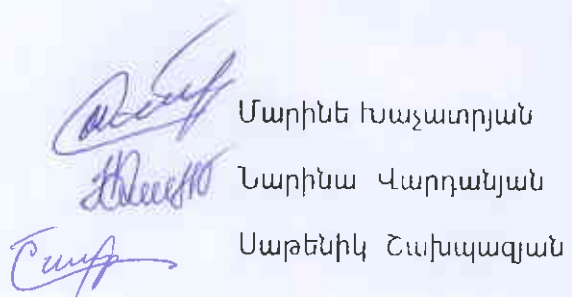 Մարինե Խաչատրյան
Նարինա Վարդանյան
Սաթենիկ Շախպազյան